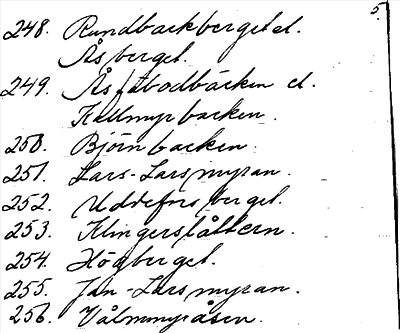 5.
248. Rundbackberget el.
Åsberget.
249. Åsfäbodbäcken el.
Källmyrbacken.
250. Björnbacken.
251. Lars-Larsmyran.
252. Uddeforsberget.
253. Klingerslåttern.
254. Högberget.
255. Jan-Larsmyran.
256. Vålmmyråsen.